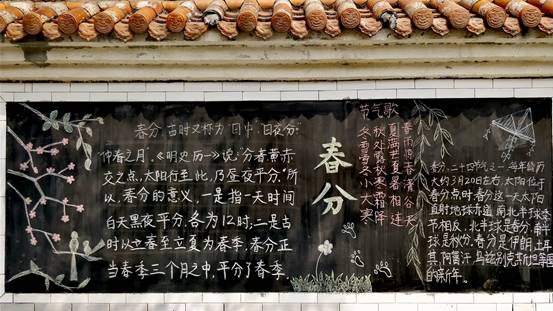 春分,古时又称为“日中”、“日夜分”、
“仲春之月”,《明史·历一》说:“分者黄赤
交之点,太阳行至此,乃昼夜平分。”所
以,春分的意义,一是指一天时间
白天黑夜平分,各为12时;二是古
时以立春至立夏为春季,春分正
当春季三个月之中,平分了春季.
春分
节气歌
春雨惊春清谷天
夏满芒夏暑相连
秋处露秋寒霜降
冬雪雪冬小大寒
春分,二十四节气之一,每年历
大约3月20日左右,太阳位于
春分点时.春分这一天太阳
直射地球赤道,南北半球季
节相反,北半球是春分,南半
球是秋分.春分是伊朗,土耳
其,阿富汗,乌兹别克斯坦等国
的新年.